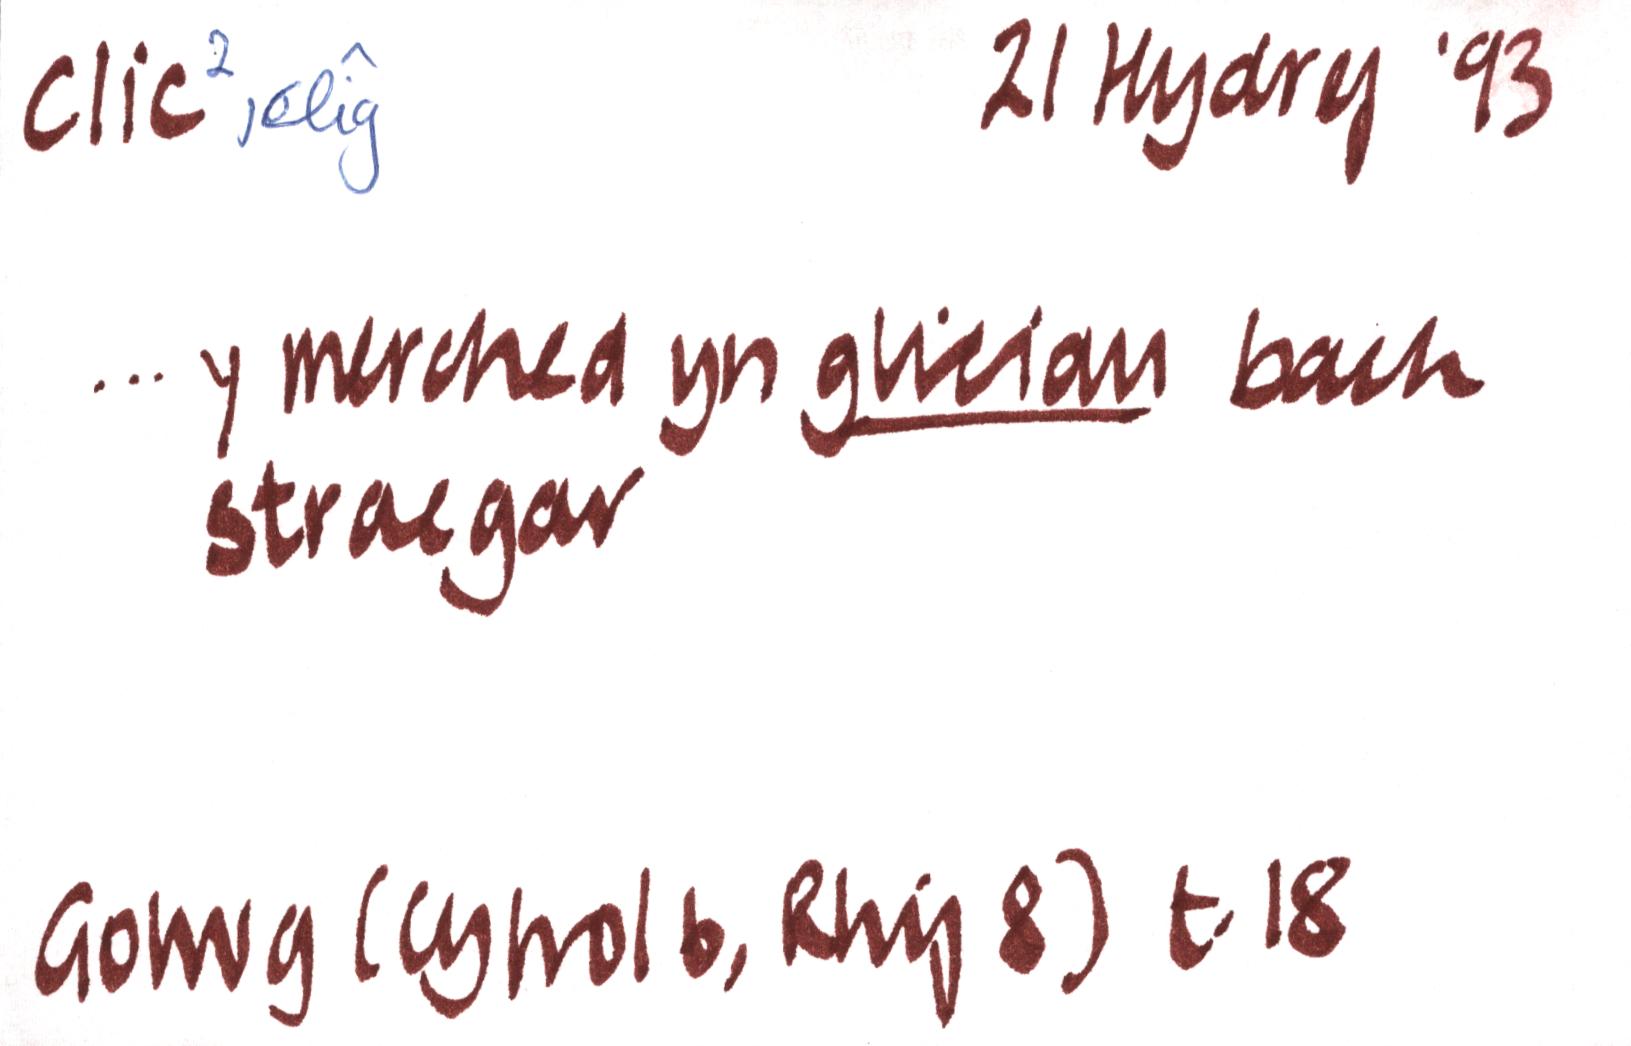 Clic², clîg 21 Hydref '93
... y merched yn glician bach
straegar
Golwg (Cyfrol 6, Rhif 8) t. 18